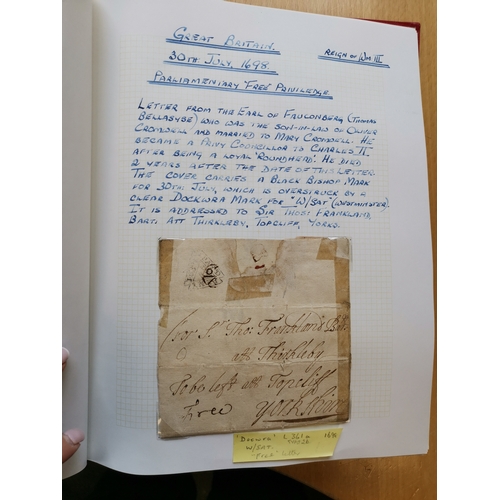 GREAT BRITAIN.
REIGN OF WM III
30TH JULY, 1698.
PARLIAMENTARY 'FREE' PRIVILEGE
LETTER FROM THE EARL OF FAUCONBERG (THOMAS
BELLASYSE) WHO WAS THE SON-IN-LAW OF OLIVER
CROMWELL AND MARRIED TO MARY CROMWELL. HE
BECAME A PRIVY COUNCILLOR TO CHARLES II.
AFTER BEING A LOYAL 'ROUNDHEAD'. HE DIED
2 YEARS AFTER THE DATE OF THIS LETTER.
THE COVER CARRIES A BLACK BISHOP MARK
FOR 30TH JULY, WHICH IS OVERSTRUCK BY A
CLEAR DOCKWRA MARK FOR 'W/SAT' (WESTMINSTER).
IT IS ADDRESSED TO SIR THOS: FRANKLAND,
BART. ATT THIRKLEBY, TOPCLIFF, YORKS.
For Sr. Tho: Franckland Bart.
att Thirkleby
To be left att Topcliff
Free Yorkshire
'DOCWRA' L 361 1698
W/SAT.